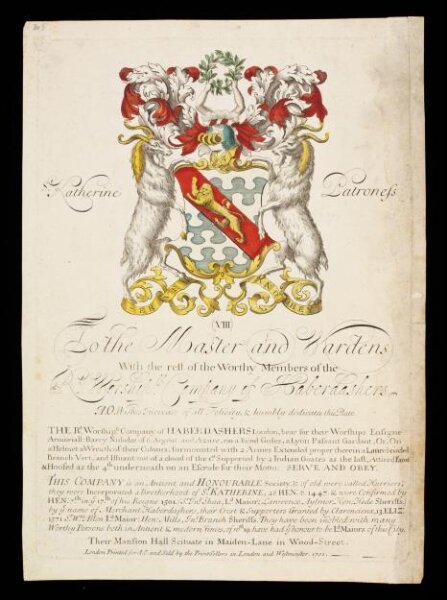 St. Katherine Patroness
SERVE AND OBEY
(VIII)
To the Master and Wardens
With the rest of the Worthy Members of the
Rt. Worshipll. Company of Haberdashers
Wishes Increase of all Felicity, & humbly dedicates this Plate
THE Rt. Worshipll. Company of HABERDASHERS London, bear for their Worships Ensigns
Armoriall: Barry Nebulee of 6 Argent and Azure, on a Bend Gules, a Lyon Passant Gardant, Or, On
a Helmet a Wreath of their Colours, Surmounted with 2 Armes Extended proper therein a Laurel
Branch Vert, and Issuant out of a cloud of the Supported by 2 Indian Goates as the last, Attired
& Hoofed as the 4th. underneath on an Escrole for their Motto. SERVE AND OBEY.
THIS COMPANY is an Antient and HONOURABLE Society; & of old were called Hurriers;
they were Incorporated a Brotherhood of St. KATHERINE, 26 HEN. 6. 1447. & were Confirmed by
HEN. 7th. in ye. 17th. of his Reigne 1501. Ld. Maior; Sheriffs;
by ye. name of Merchant Haberdashers, their Crest & Supporters Granted by Clarencieux, 13 ELIZ.
1571 Ld. Maior: Hen: Mills, Branch Sheriffs. They have been inobled with many
Worthy Persons both in Antient & modern times, of wch. have had ye. honour to be Ld. Maiors of this City.
Their Mansion Hall Scituate in Maiden-Lane in Wood-Street.
London Printed for and Sold by the Print Sellers in London and Westmster.